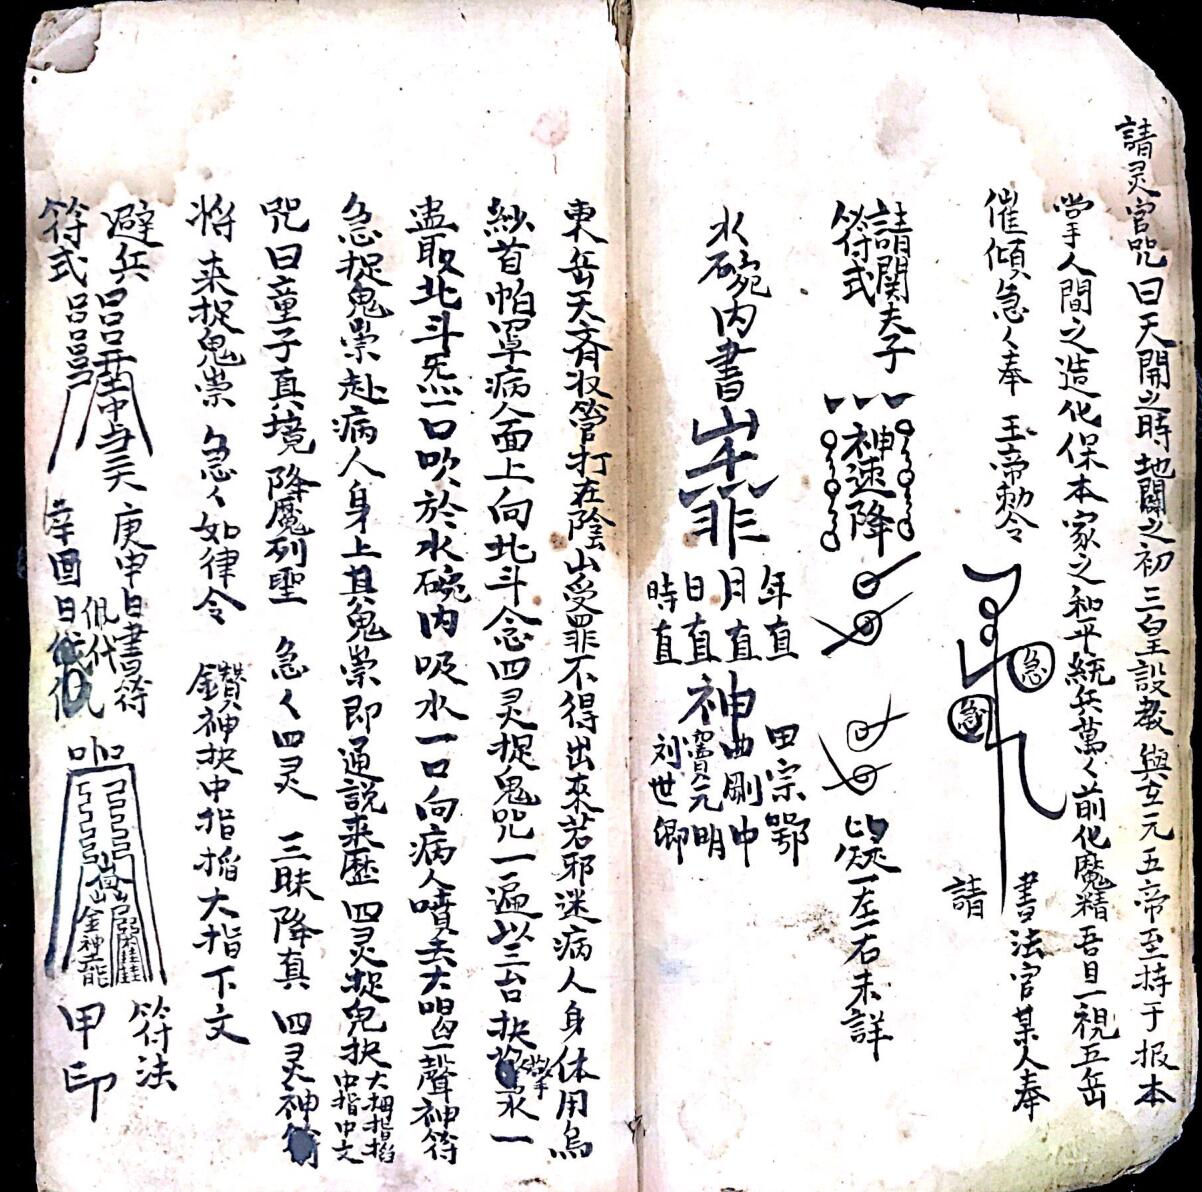 請灵官咒曰天開之時地闢之初三皇設教與立元五帝至持于报本
掌人間之造化保本家之和平統兵萬々前化魔精吾目一視五岳
催傾急々奉 玉帝勅令
急
急
書法官某人奉
請
請関夫子
符式
神速降
疑一左一右未詳
水碗内書
年直
月直
日直
時直
神
田宗鄂
曲剛中
元明
刘世卿
東岳天齊收管打在陰山受罪不得出來若邪迷病人身体用烏
紗首帕罩病人面上向北斗念四灵捉鬼咒一遍以三台抉
水一
盅取北斗炁一口吹於水碗内吸水一口向病人噴去大喝一聲神符
急捉鬼祟赴病人身上其鬼祟即通説来歷 四灵捉鬼抉
大拇指掐
中指中文
咒曰童子真境降魔列聖 急々四灵 三昧降真 四灵神符
将来捉鬼祟 急々如律令 鑽神抉中指掐大指下文
避兵
符式
庚申日書符
佩代
辛酉日
金神
符法
甲印